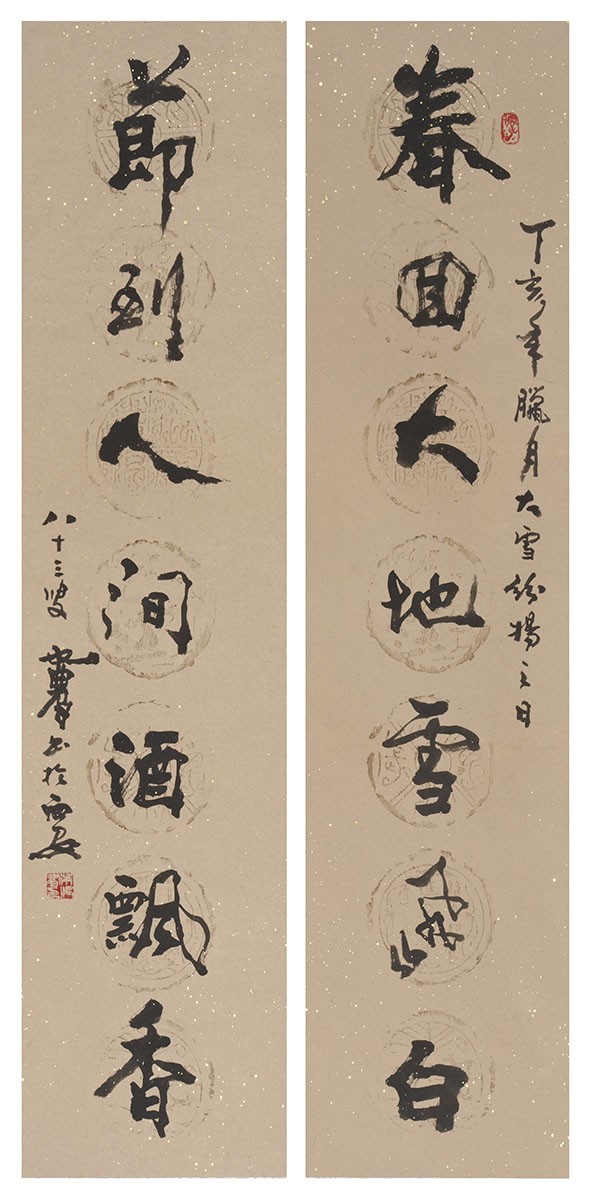 丁亥年臘月大雪紛揚之日
春回大地雪飛白
節到人間酒飄香
八十三叟 书於西安